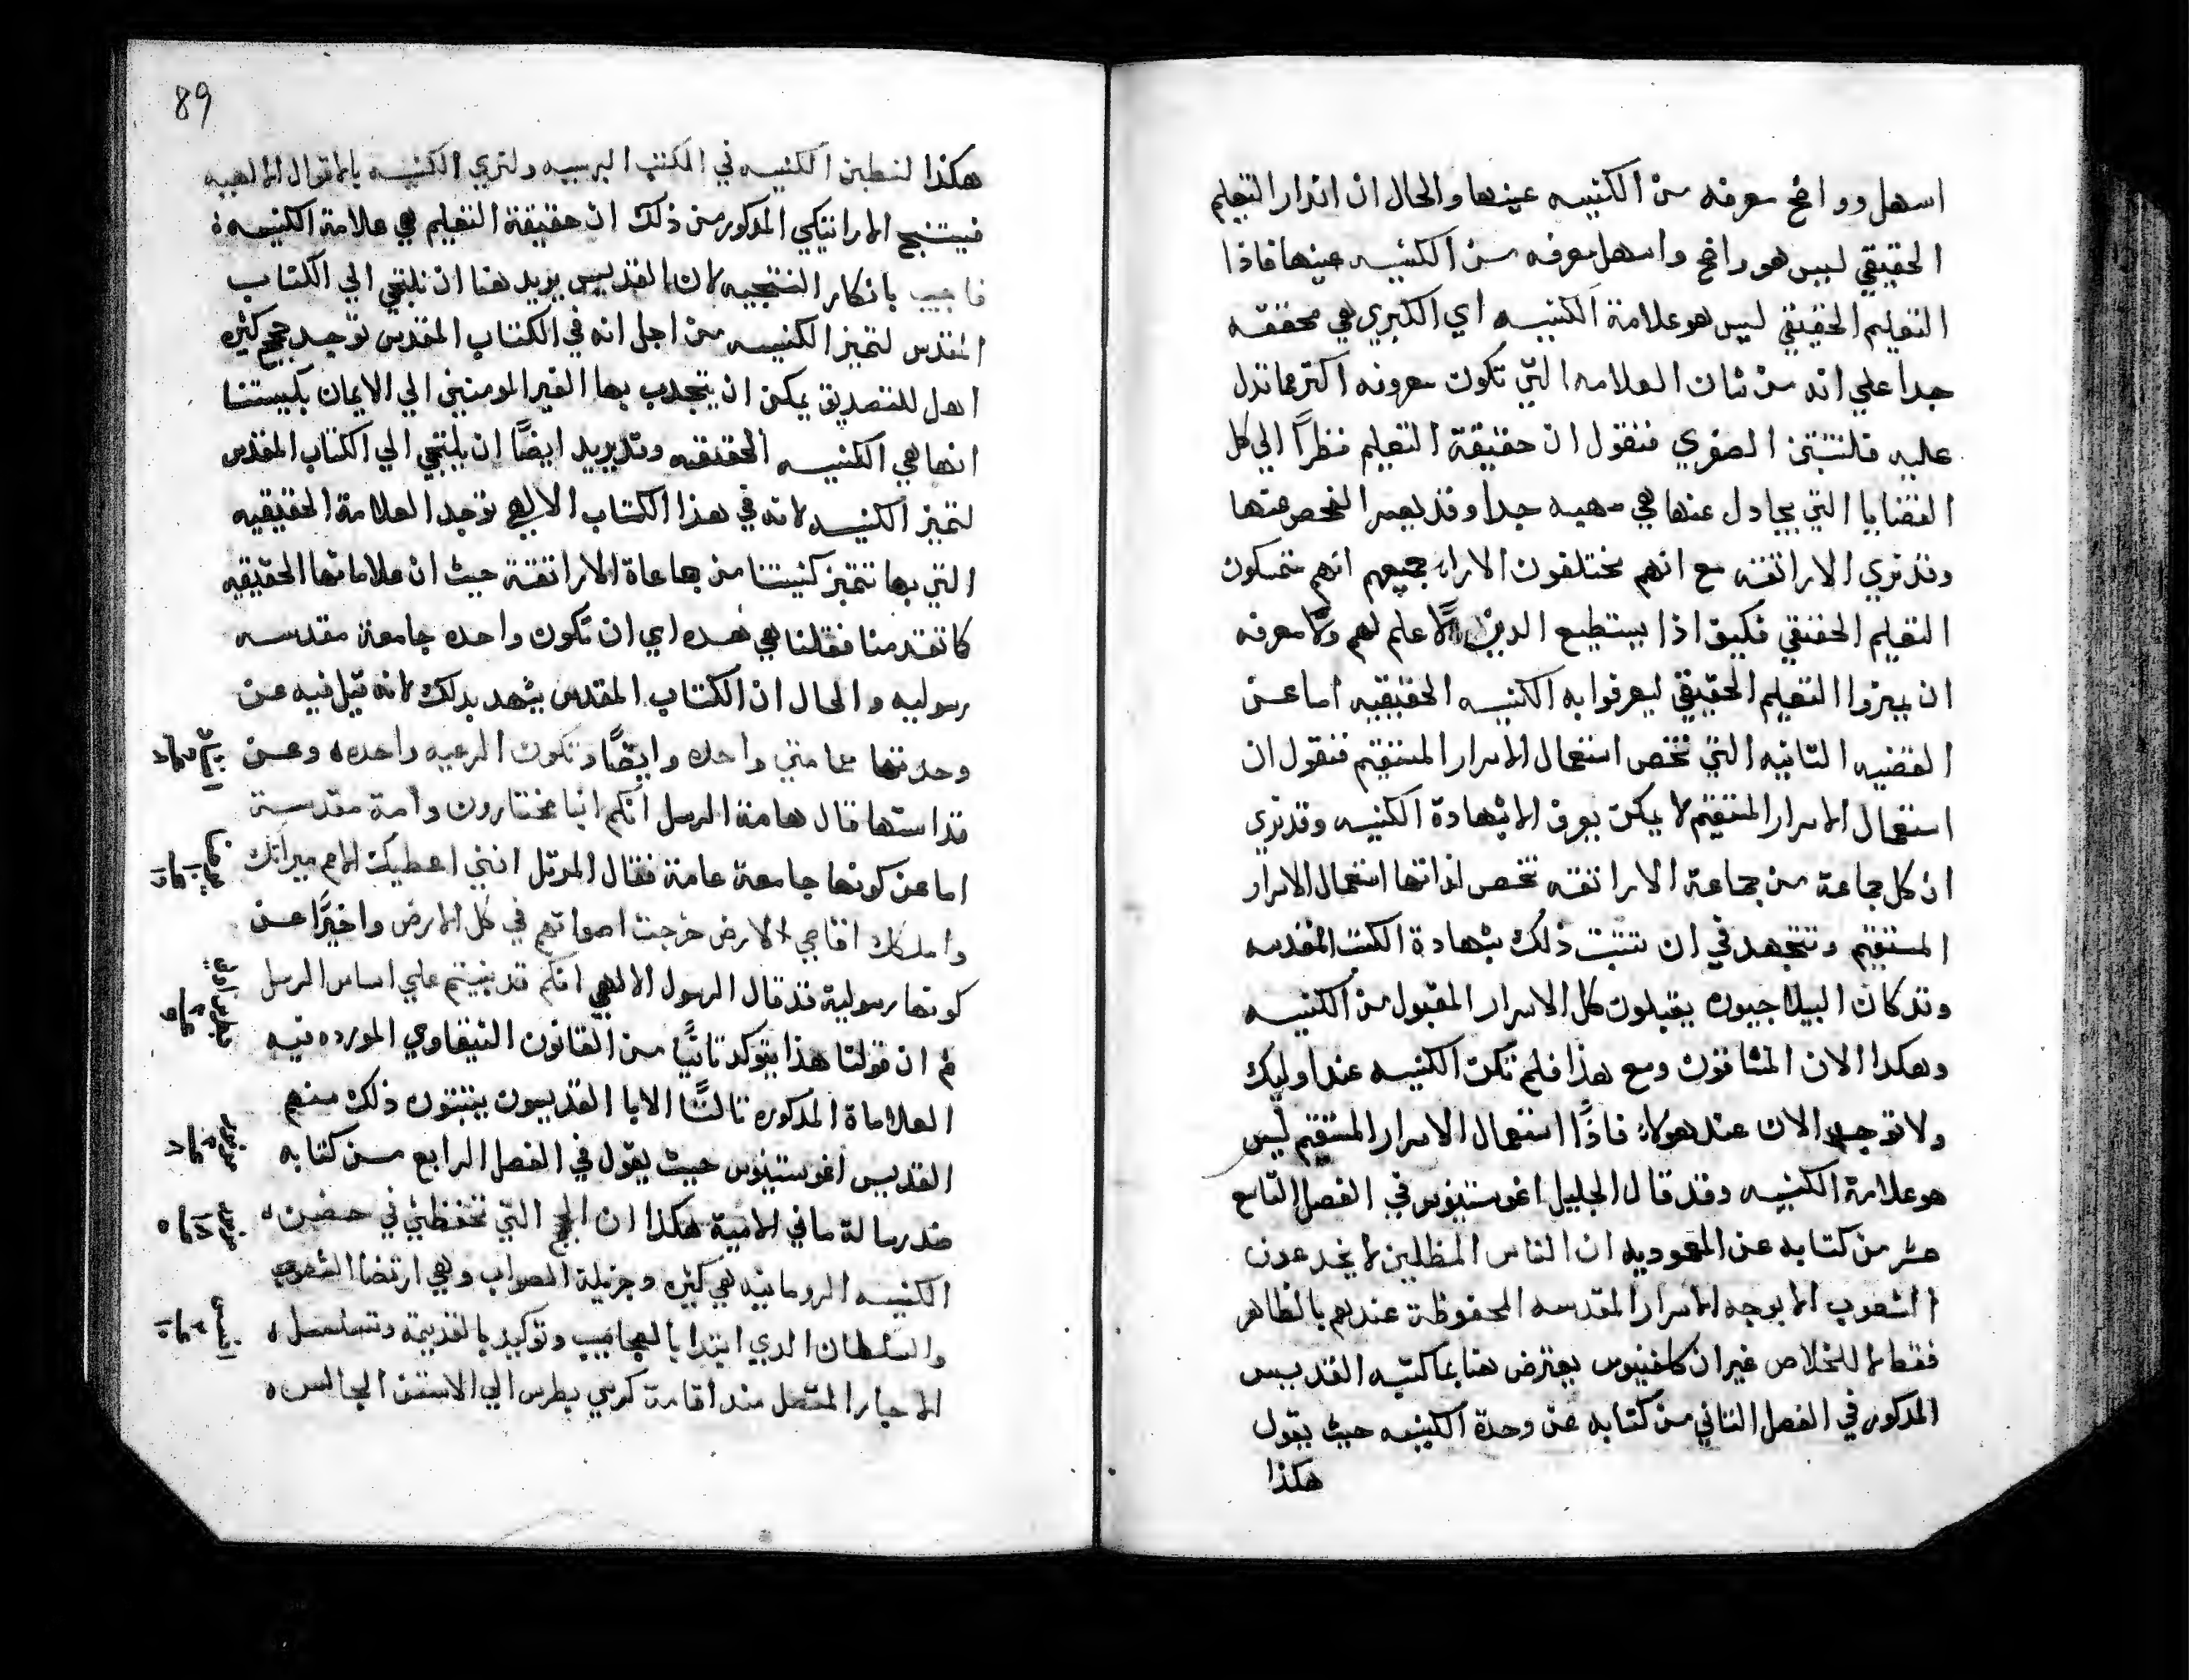 اسهل وواضح معرفه من الكنيسه عينها والحال ان اندار التعليم
الحقيقي ليس هو واضح واسهل معرفه من الكنيسه عينها فاذا
التعليم الحقيقي ليس هو علامة الكنيسه اي الكبري هي محققه
جدا علي انه من شان العلامه التي تكون معروفه اكتر مما تدل
عليه فلنتبتن الصغري فنقول ان حقيقة التعليم نظراً الي كل
القضايا التي يجادل عنها هي جدا وقد يعسر الفحص عنها
وقد نري الاراتقه مع انهم مختلفون الارا جميعهم انهم متمسكون
التعليم الحقيقي فكيف اذا يستطيع الدين لا علم لهم ولا معرفه
ان يميزوا التعليم الحقيقي ليعرفوا به الكنيسه الحقيقيه اما عن
القضيه التانيه التي تخص استعمال الاسرار المستقيم فنقول ان
استعمال الاسرار المستقيم لا يمكن يعرف الا بشهادة الكنيسه وقد نري
ان كل جماعة من جماعة الاراتقه تخص لذاتها استعمال الاسرار
المستقيم وتجهد في ان تتبت ذلك بشهادة الكتب المقدسه
وقد كان البيلاجيون يقبلون كل الاسرار المقبول من الكنيسه
وهكدا الان المشاقون ومع هذا فلم تكن الكنيسه عند اوليك
ولا توجد الان عند هولاء فاذًا استعمال الاسرار المستقيم ليس
هو علامة الكنيسه وقد قال الجليل اغوستينوس في الفصل التاسع
عشر من كتابه عن المعموديه ان الناس المظلين لا يخدعون
الشعوب الا بوجه الاسرار المقدسه المحفوظة عندهم بالظاهر
فقط لا للخلاص غير ان كلفينوس يعترض هنا بما كتبه القديس
المدكور في الفصل التاني من كتابه عن وحدة الكنيسه حيث يقول
هكذا
89
هكذا الكنيسه في الكتب ولنري الكنيسه بالاقوال الالهيه
فيستنج الاراتيكي المدكور من ذلك ان حقيقة التعليم هي علامة الكنيسه
فاجيب بانكار النتيجيه لان القديس يريد هنا ان نلتجي الي الكتاب
المقدس لتميز الكنيسه من اجل انه في الكتاب المقدس توجد حجج كثيره
اهل للتصديق يمكن ان يتجدب بها الغير المومنين الي الايمان بكنيستنا
انها هي الكنيسه الحقيقيه وقد يريد ايضًا ان يلتجي الي الكتاب المقدس
لتميز الكنيسه لانه في هذا الكتاب الالهي توجد العلامة الحقيقيه
التي بها تتميز كنيستنا من جماعاة الاراتقة حيث ان علاماتها الحقيقيه
كما تقدمنا فقلنا هي هده اي ان تكون واحده جامعة مقدسه
رسوليه والحال ان الكتاب المقدس يشهد بدلك لانه قيل فيه عن
وحدتها حمامتي واحده وايضًا وتكون الرعيه واحده وعن
قداستها قال هامة الرسل انكم انتا مختارون وامة مقدسة
اما عن كونها جامعة عامة فقال المرتل انني اعطيك الامم ميراتك
وامدكلك اقاصي الارض خرجت اصواتهم في كل الارض واخيرًا عن
كونها رسولية فقد قال الرسول الالهي انكم قد بنيتم علي اساس الرسل
ثم ان قولنا هذا يتوكد تانيًا من القانون النيقاوي المورده فيه
العلاماة المدكوره تالتًا الابا القديسون يتبتون ذلك منهم
القديس اغوستينوس حيث يقول في الفصل الرابع من كتابه
ضد رسالة ماني الامية هكذا ان التي تحفظني في حضن
الكنيسه الرومانيه هي كثيره وجزيلة الصواب وهي ارتضا الشعوب
والسلطان الدي ابتدا بالعجايب وتوكيد بالقديمة وتسلسل
الاحبار المتصل مند اقامة كرسي بطرس الي الاسقف الجالس